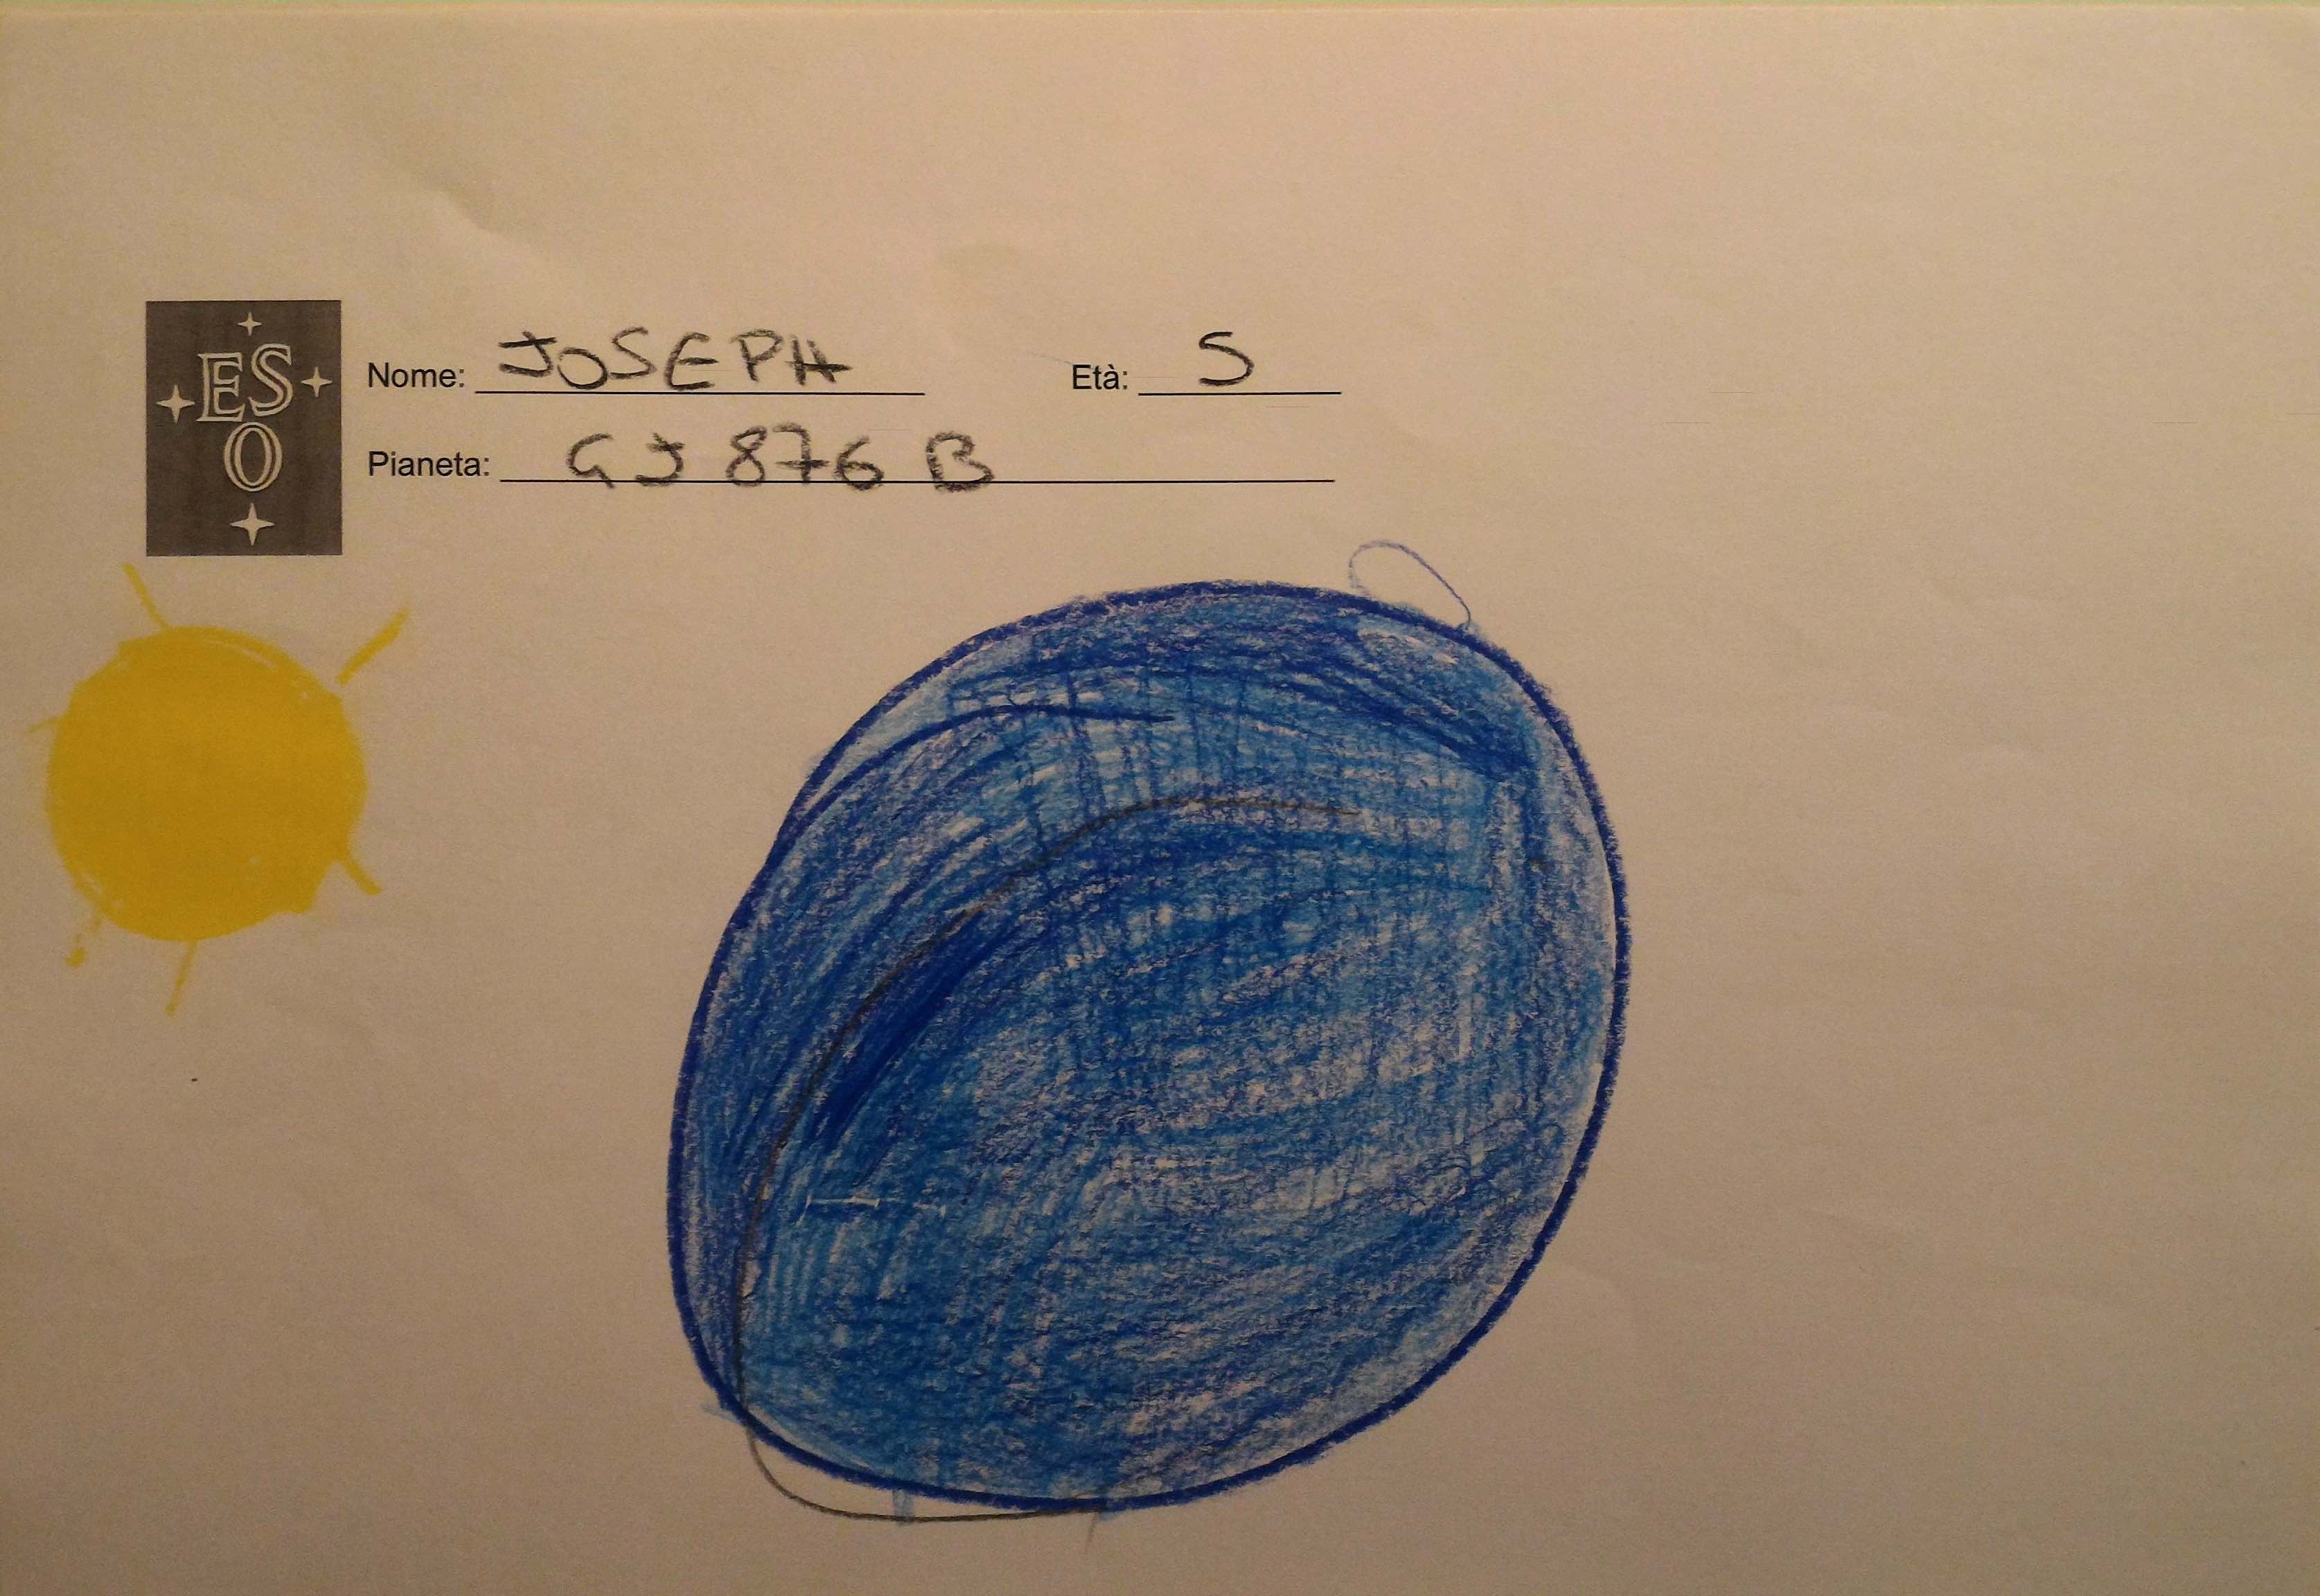 ESO
Nome: JOSEPH Età: 5
Pianeta: GJ 876 B